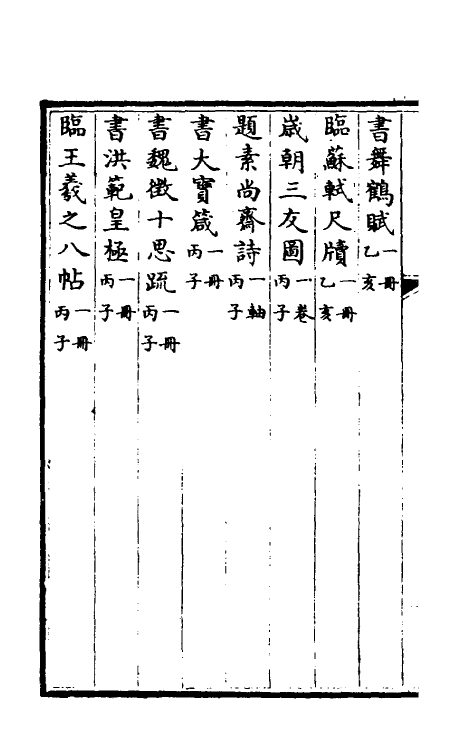 書舞鶴賦一冊乙亥
臨蘇軾尺牘一冊乙亥
歲朝三友圖一卷丙子
題素尚齋詩一軸丙子
書大寶箴一冊丙子
書魏徴十思疏一冊丙子
書洪範皇極一冊丙子
臨王羲之八帖一冊丙子